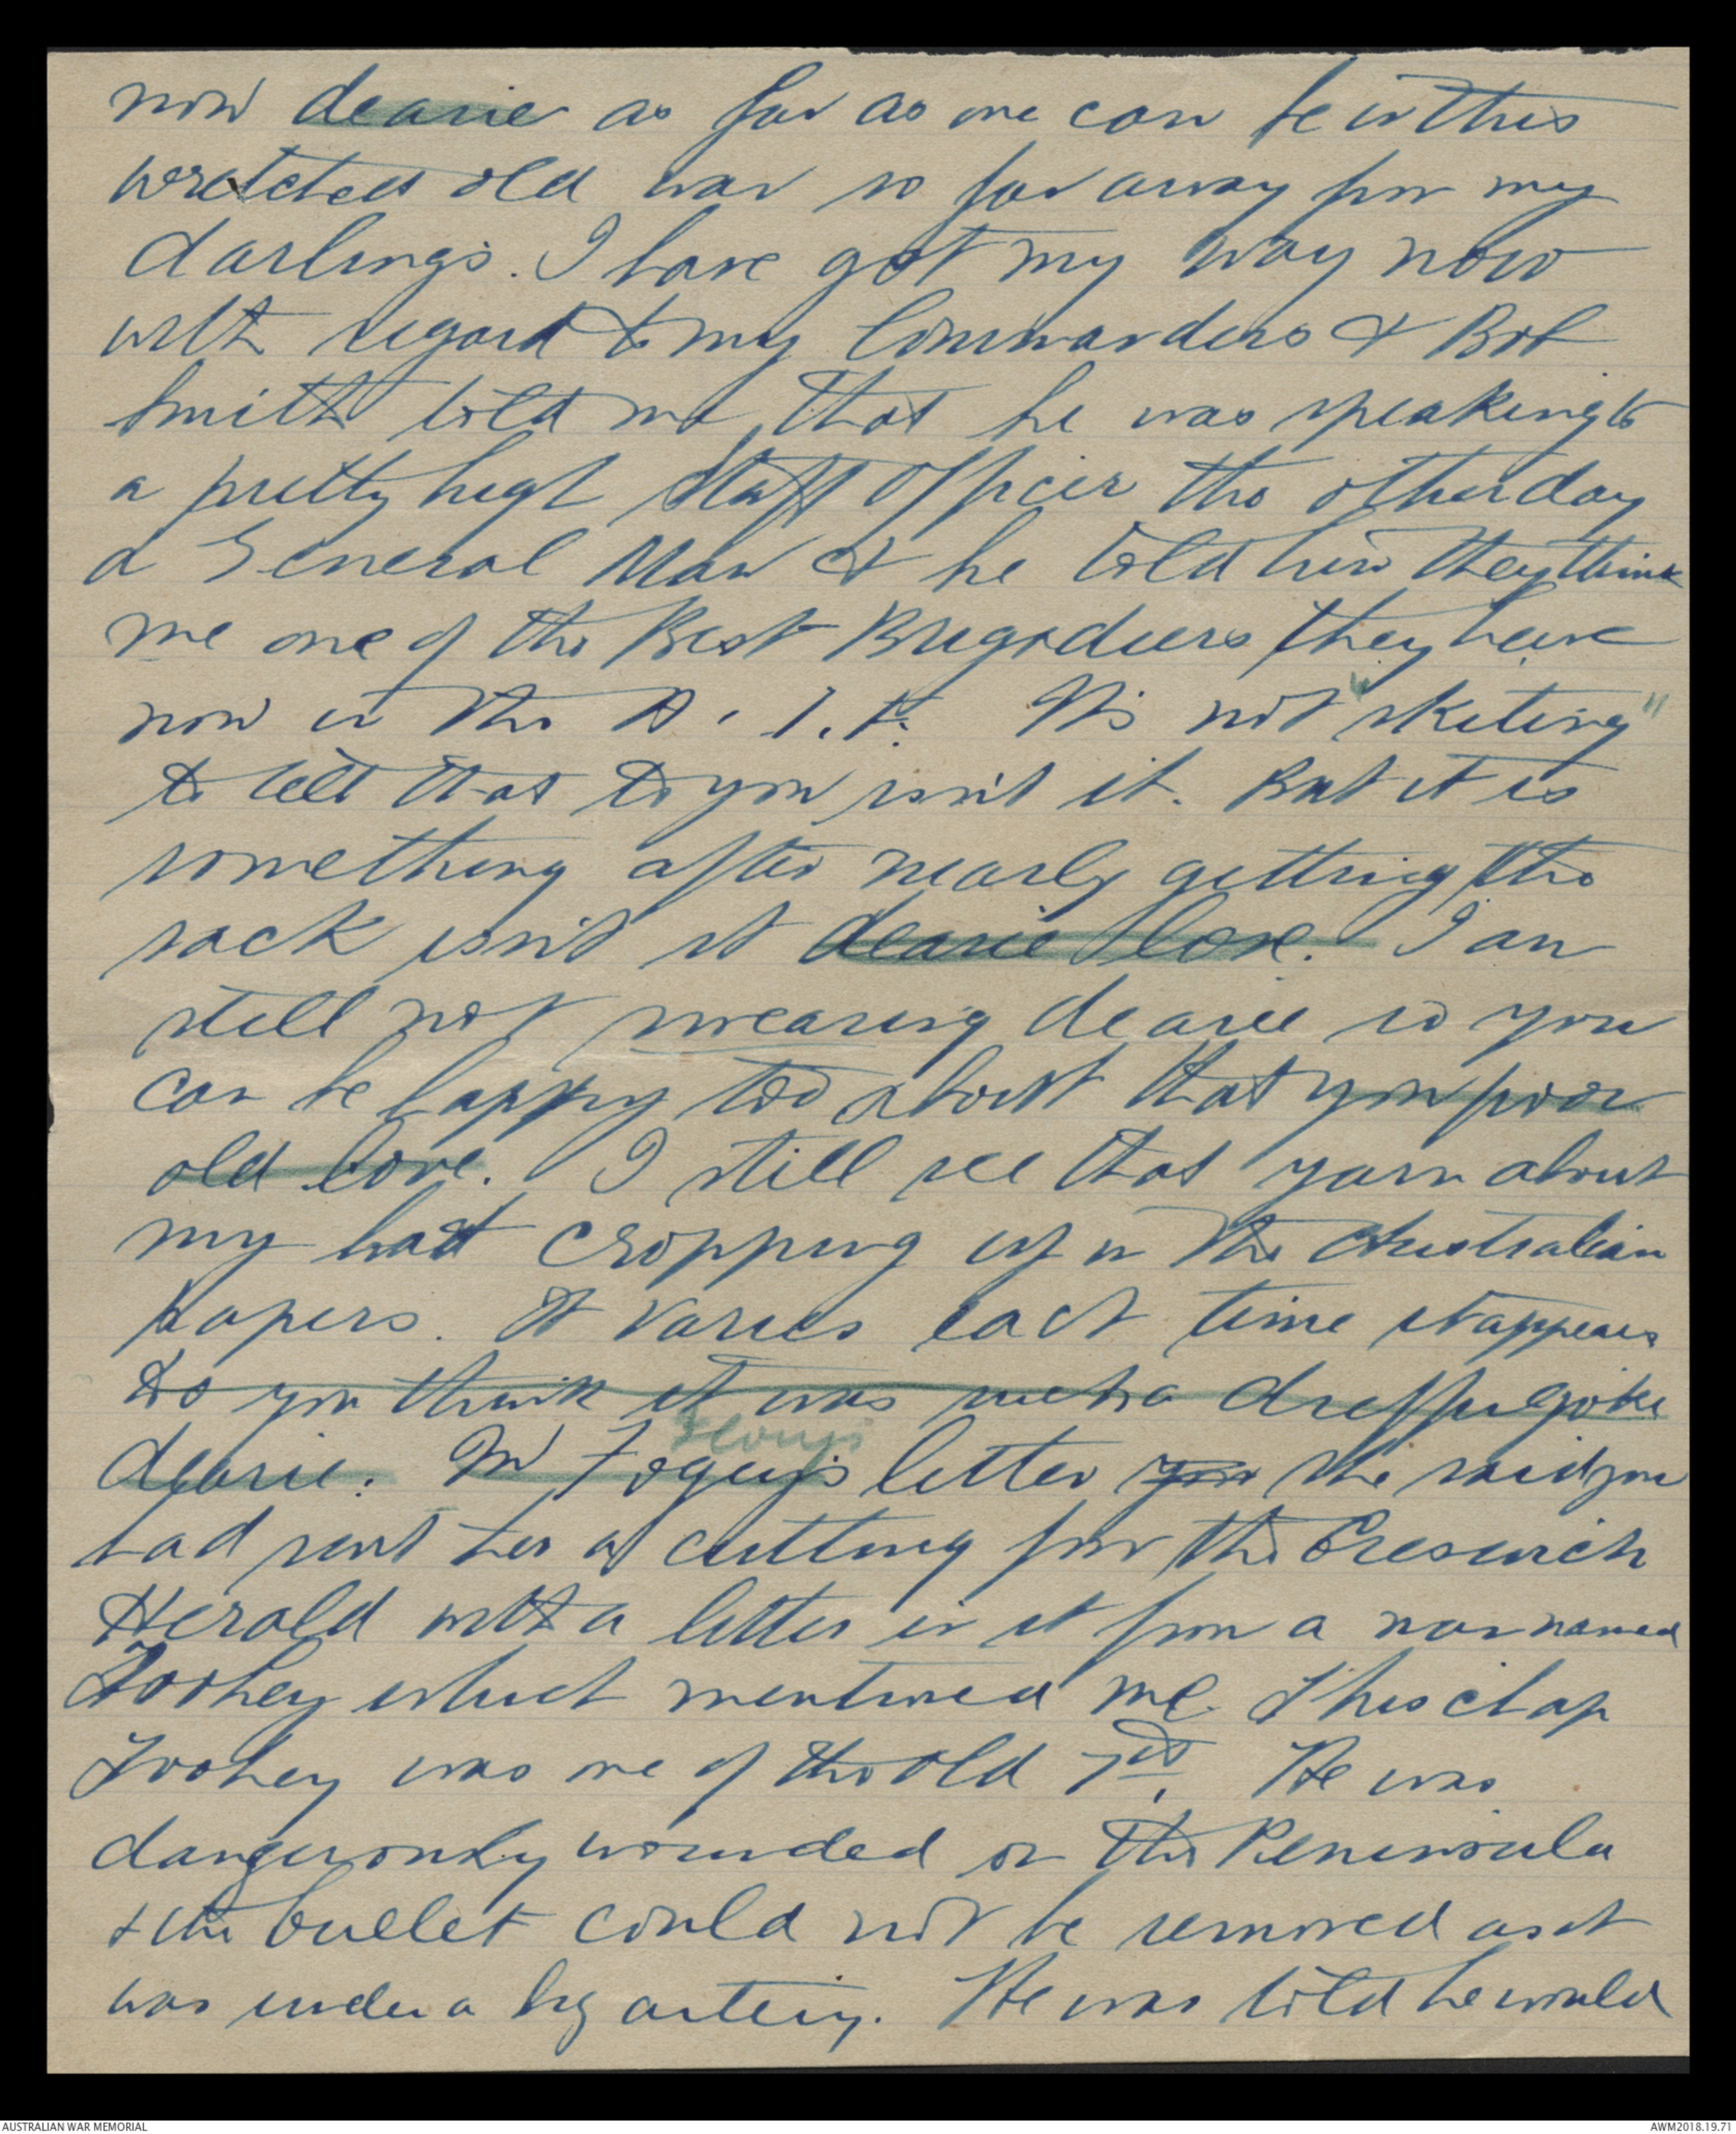 now dearie as far as one can be in this
wretched old war so far away from my
darlings. I have got my way now
with regard to my Commanders & Bob
Smith told me that he was speaking to
a pretty high Staff Officer the other day
a General Man & he told him they think
me one of the Best Brigadiers they have
now in the A.I.F. It's not "skiting"
to tell that to you isn't it. But it is
something after nearly getting the
sack isn't it dearie love. I am
still not swearing dearie so you
can be happy too about that you poor
old love. I still see that yarn about
my hat cropping up in the Australian
papers. It varies each time it appears
Do you think it was such a dreffu joke
dearie. In Fogey's letter you she said you
Flory's
had sent her a cutting from the Creswick
Herald with a letter in it from a man named
Toohey which mentioned me. This chap
Toohey was one of the old 7th. He was
dangerously wounded on the Peninsula
& the bullet could not be removed as it
was under a big artery. He was told he would
AUSTRALIAN WAR MEMORIAL
AWM2018.19.71